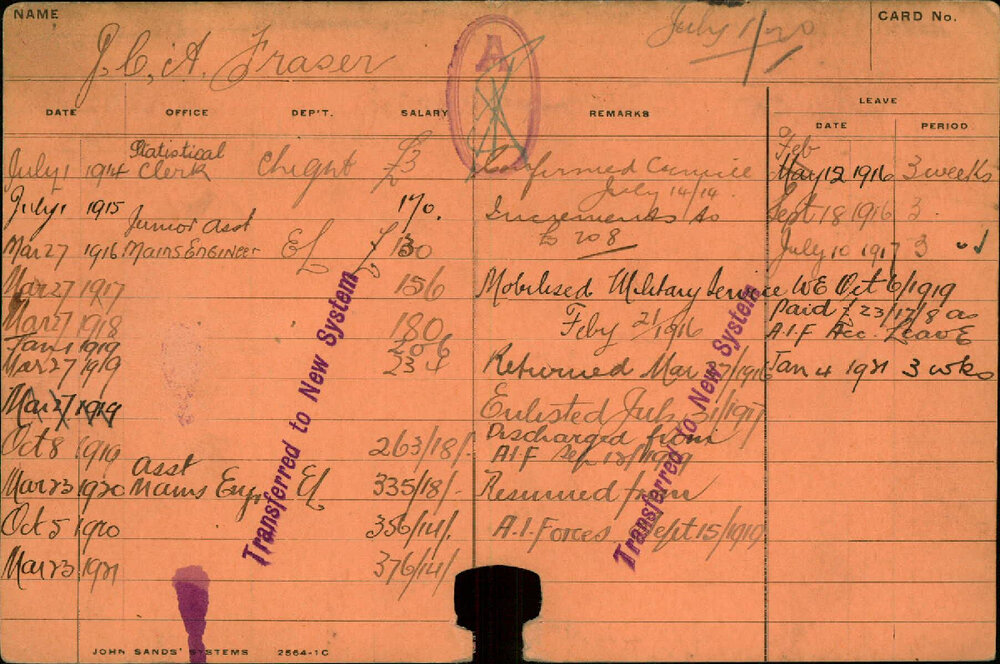 NAME
J. C. A. Fraser
July 1/20
CARD No.
DATE OFFICE DEP'T. SALARY REMARKS
LEAVE
DATE PERIOD
A
July 1 1914 Statistical Clerk £3 Confirmed July 14/14
Feb
May 12 1916 3 weeks
July 1 1915 170. Increments to £208
Sept 18 1916 3
Mar 27 1916 Junior Asst Mains Engineer EL £130
July 10 1917 3
Mar 27 1917 156 Mobilised Military Service
WE Oct 6/1919
Mar 27 1918 180 Feby 21/1916
Paid £23/17/8 as
A.I.F Acc. Leave
Jan 1 1919 206
Mar 27 1919 234 Returned Mar
Jan 4 1921 3 wks
Mar 27 1919 Enlisted July 1917
Oct 8 1919 263/18/- Discharged from
A.I.F Sep 1919
Mar 23 1920 Asst Mains Eng. El 335/18/- Resumed from
Oct 5 1920 356/14/- A.I. Forces Sept 15/1919
Mar 23 1921 376/14/-
Transferred to New System
Transferred to New System
JOHN SANDS' SYSTEMS 2564-1C